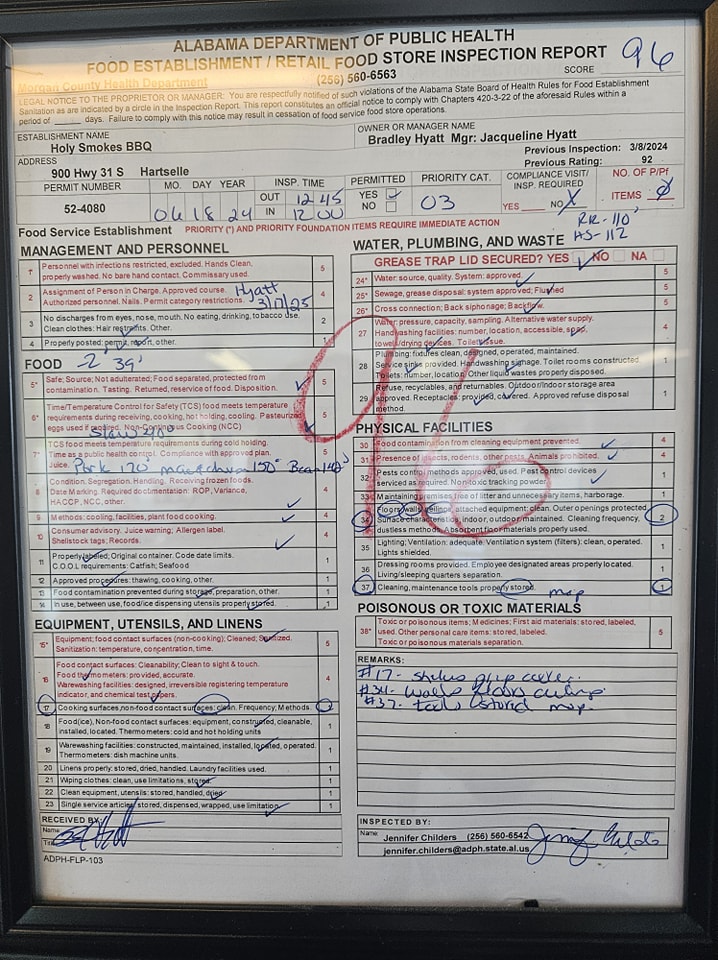 ALABAMA DEPARTMENT OF PUBLIC HEALTH
FOOD ESTABLISHMENT / RETAIL FOOD STORE INSPECTION REPORT
96
SCORE
Morgan County Health Department
(256) 560-6563
LEGAL NOTICE TO THE PROPRIETOR OR MANAGER: You are respectfully notified of such violations of the Alabama State Board of Health Rules for Food Establishment
Sanitation as are indicated by a circle in the Inspection Report. This report constitutes an official notice to comply with Chapters 420-3-22 of the aforesaid Rules within a
period of ______ days. Failure to comply with this notice may result in cessation of food service food store operations.
ESTABLISHMENT NAME
Holy Smokes BBQ
OWNER OR MANAGER NAME
Bradley Hyatt Mgr: Jacqueline Hyatt
Previous Inspection: 3/8/2024
Previous Rating: 92
ADDRESS
900 Hwy 31 S Hartselle
PERMIT NUMBER
52-4080
MO. DAY YEAR
06 18 24
INSP. TIME
OUT 12 45
IN 12 00
PERMITTED
YES
NO
PRIORITY CAT.
03
COMPLIANCE VISIT/
INSP. REQUIRED
YES NO X
NO. OF P/Pf
ITEMS Ø
RR-110°
HS-112
Food Service Establishment PRIORITY (*) AND PRIORITY FOUNDATION ITEMS REQUIRE IMMEDIATE ACTION
MANAGEMENT AND PERSONNEL
1* Personnel with infections restricted, excluded. Hands Clean, 5
properly washed. No bare hand contact. Commissary used.
2 Assignment of Person in Charge. Approved course. Hyatt 4
Authorized personnel. Nails. Permit category restrictions. 3/17/25
3 No discharges from eyes, nose, mouth. No eating, drinking, tobacco use. 2
Clean clothes: Hair restraints. Other.
4 Properly posted: permit, report, other. 1
FOOD -2° 39°
5* Safe; Source; Not adulterated; Food separated, protected from 5
contamination. Tasting. Returned, reservice of food. Disposition.
6* Time/Temperature Control for Safety (TCS) food meets temperature 5
requirements during receiving, cooking, hot holding, cooling. Pasteurized
eggs used if required. Non-Continuous Cooking (NCC)
Slaw 40°
7* TCS food meets temperature requirements during cold holding.
Time as a public health control. Compliance with approved plan.
Juice. Pork 170° 150° 140°
8 Condition. Segregation. Handling. Receiving frozen foods. 4
Date Marking. Required documentation: ROP, Variance,
HACCP, NCC, other.
9 Methods: cooling, facilities, plant food cooking. 4
10 Consumer advisory. Juice warning; Allergen label. 4
Shellstock tags; Records.
11 Properly labeled; Original container. Code date limits. 1
C.O.O.L requirements: Catfish; Seafood
12 Approved procedures: thawing, cooking, other. 1
13 Food contamination prevented during storage, preparation, other. 1
14 In use, between use, food/ice dispensing utensils properly stored. 1
EQUIPMENT, UTENSILS, AND LINENS
15* Equipment; food contact surfaces (non-cooking); Cleaned; Sanitized. 5
Sanitization: temperature, concentration, time.
16 Food contact surfaces: Cleanability; Clean to sight & touch. 4
Food thermometers: provided, accurate.
Warewashing facilities: designed, irreversible registering temperature
indicator, and chemical test papers.
17 Cooking surfaces, non-food contact surfaces: clean. Frequency, Methods.
18 Food(ice), Non-food contact surfaces: equipment, constructed, cleanable, 1
installed, located. Thermometers: cold and hot holding units
19 Warewashing facilities: constructed, maintained, installed, located, operated. 1
Thermometers: dish machine units.
20 Linens properly: stored, dried, handled. Laundry facilities used. 1
21 Wiping clothes: clean, use limitations, stored. 1
22 Clean equipment, utensils: stored, handled, dried 1
23 Single service articles: stored, dispensed, wrapped, use limitation 1
RECEIVED BY:
Name:
Title:
ADPH-FLP-103
WATER, PLUMBING, AND WASTE
GREASE TRAP LID SECURED? YES NO NA
24* Water: source, quality. System: approved. 5
25* Sewage, grease disposal: system approved; Flushed 5
26* Cross connection; Back siphonage; Backflow. 5
27 Water: pressure, capacity, sampling. Alternative water supply. 4
Handwashing facilities: number, location, accessible, soap,
towel/drying devices. Toilet tissue.
28 Plumbing: fixtures clean, designed, operated, maintained. 1
Service sinks provided. Handwashing signage. Toilet rooms constructed.
Toilets: number, location. Other liquid wastes properly disposed.
29 Refuse, recyclables, and returnables. Outdoor/indoor storage area 1
approved. Receptacles: provided, covered. Approved refuse disposal
method.
PHYSICAL FACILITIES
30 Food contamination from cleaning equipment prevented. 4
31 Presence of insects, rodents, other pests. Animals prohibited. 4
32 Pests control methods approved, used. Pest control devices 1
serviced as required. Non-toxic tracking powder.
33 Maintaining premises, free of litter and unnecessary items, harborage. 1
34 Floors, walls, ceilings, attached equipment: clean. Outer openings protected. 2
Surface characteristics: indoor, outdoor, maintained. Cleaning frequency,
dustless methods. Absorbent floor materials properly used.
35 Lighting; Ventilation: adequate. Ventilation system (filters): clean, operated. 1
Lights shielded.
36 Dressing rooms provided. Employee designated areas properly located. 1
Living/sleeping quarters separation.
37 Cleaning, maintenance tools properly stored. mop 1
POISONOUS OR TOXIC MATERIALS
38* Toxic or poisonous items; Medicines; First aid materials: stored, labeled, 5
used. Other personal care items: stored, labeled.
Toxic or poisonous materials separation.
REMARKS:
#17- shelves
#34- walls floors ceilings
#37- tools stored mop.
INSPECTED BY:
Name: Jennifer Childers (256) 560-6542
jennifer.childers@adph.state.al.us
96